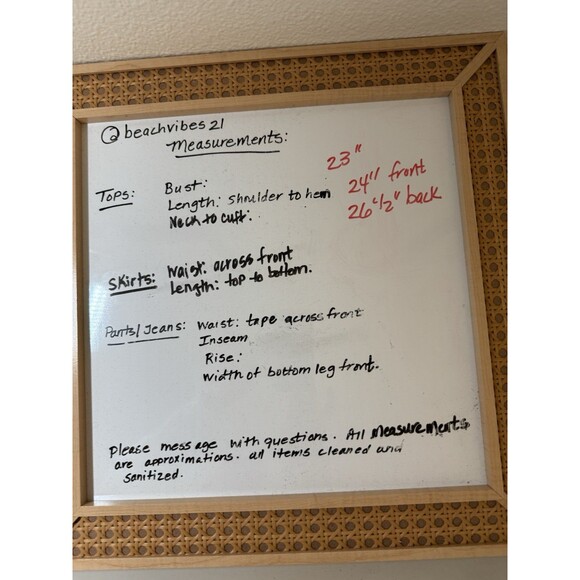 @beachvibes21
Measurements:
Tops: Bust: 23"
Length: Shoulder to hem 24" front
Neck to cuff: 26 1/2" back
Skirts: Waist: across front
Length: top to bottom.
Pants/Jeans: Waist: tape across front
Inseam
Rise:
Width of bottom leg front.
Please message with questions. All measurements
are approximations. all items cleaned and
sanitized.